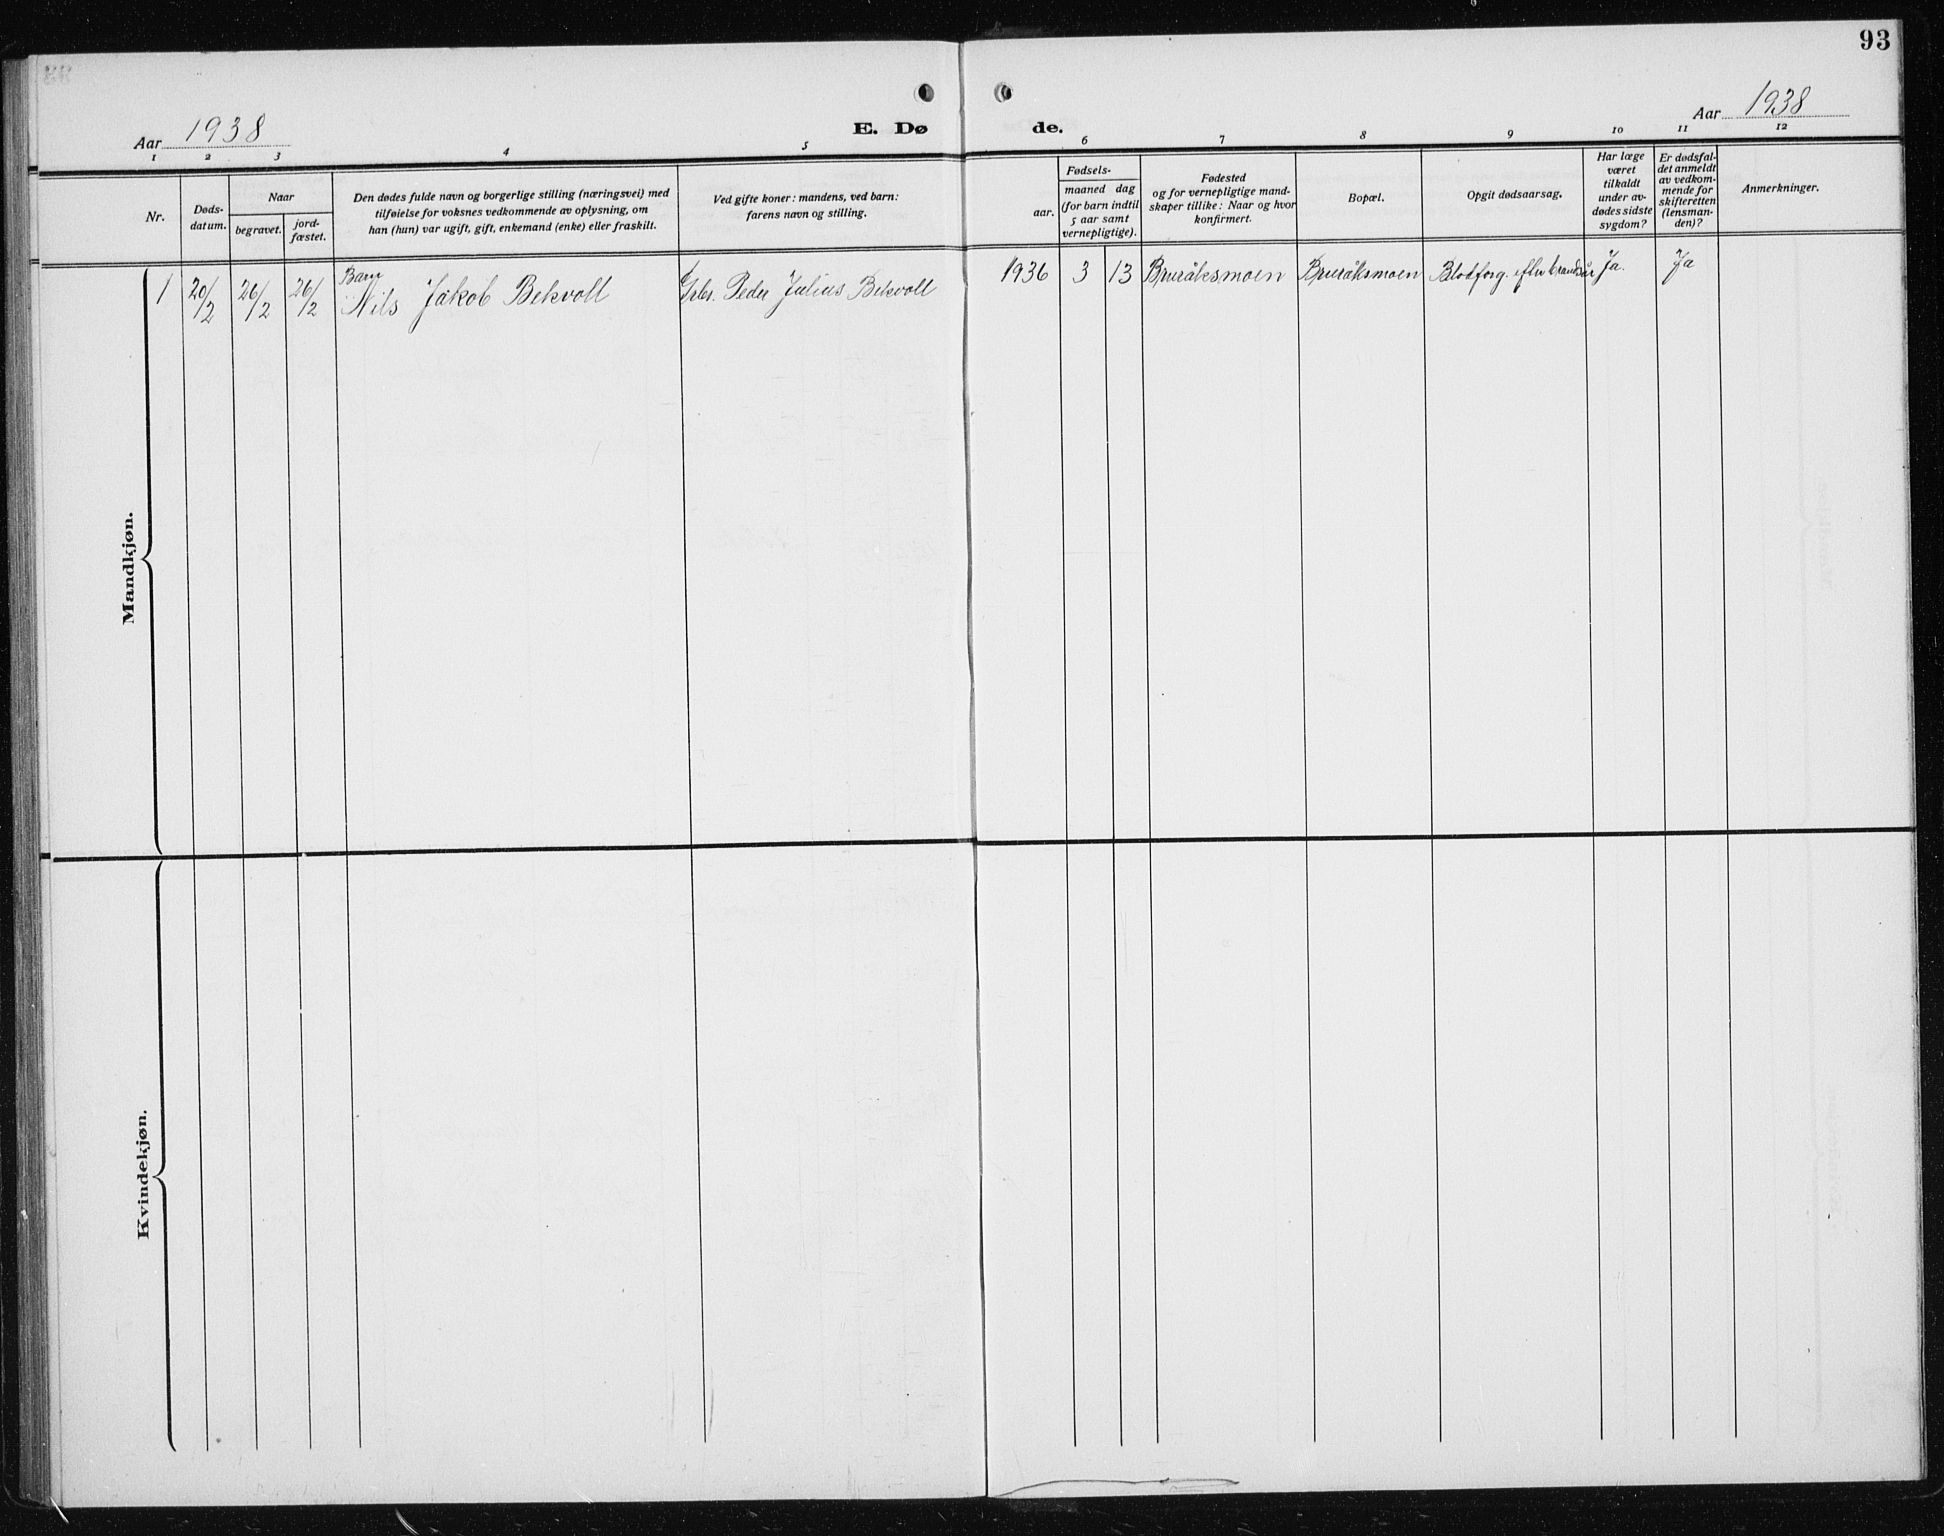 93
Aar 1938
E. Dø
de.
Aar 1938
1 2 3 4 5 6 7 8 9 10 11 12
Nr.
Døds-
datum.
Naar
begravet.
jord-
fæstet.
Den dødes fulde navn og borgerlige stilling (næringsvei) med
tilføielse for voksnes vedkommende av oplysning, om
han (hun) var ugift, gift, enkemand (enke) eller fraskilt.
Ved gifte koner: mandens, ved barn:
farens navn og stilling.
Fødsels-
aar.
maaned dag
(for barn indtil
5 aar samt
vernepligtige).
Fødested
og for vernepligtige mand-
skaper tillike: Naar og hvor
konfirmert.
Bopæl.
Opgit dødsaarsag.
Har læge
været
tilkaldt
under av-
dødes sidste
sygdom?
Er dødsfal-
det anmeldt
av vedkom-
mende for
skifteretten
(lensman-
den)?
Anmerkninger.
Mandkjøn.
1 20/2 26/2 26/2
Barn
Nils Jakob Bekvoll
Arb. Peder Julius Bekvoll
1936 3 13 Bruråksmoen Bruråksmoen Blodforg. efter brandsår Ja. Ja
Kvindekjøn.